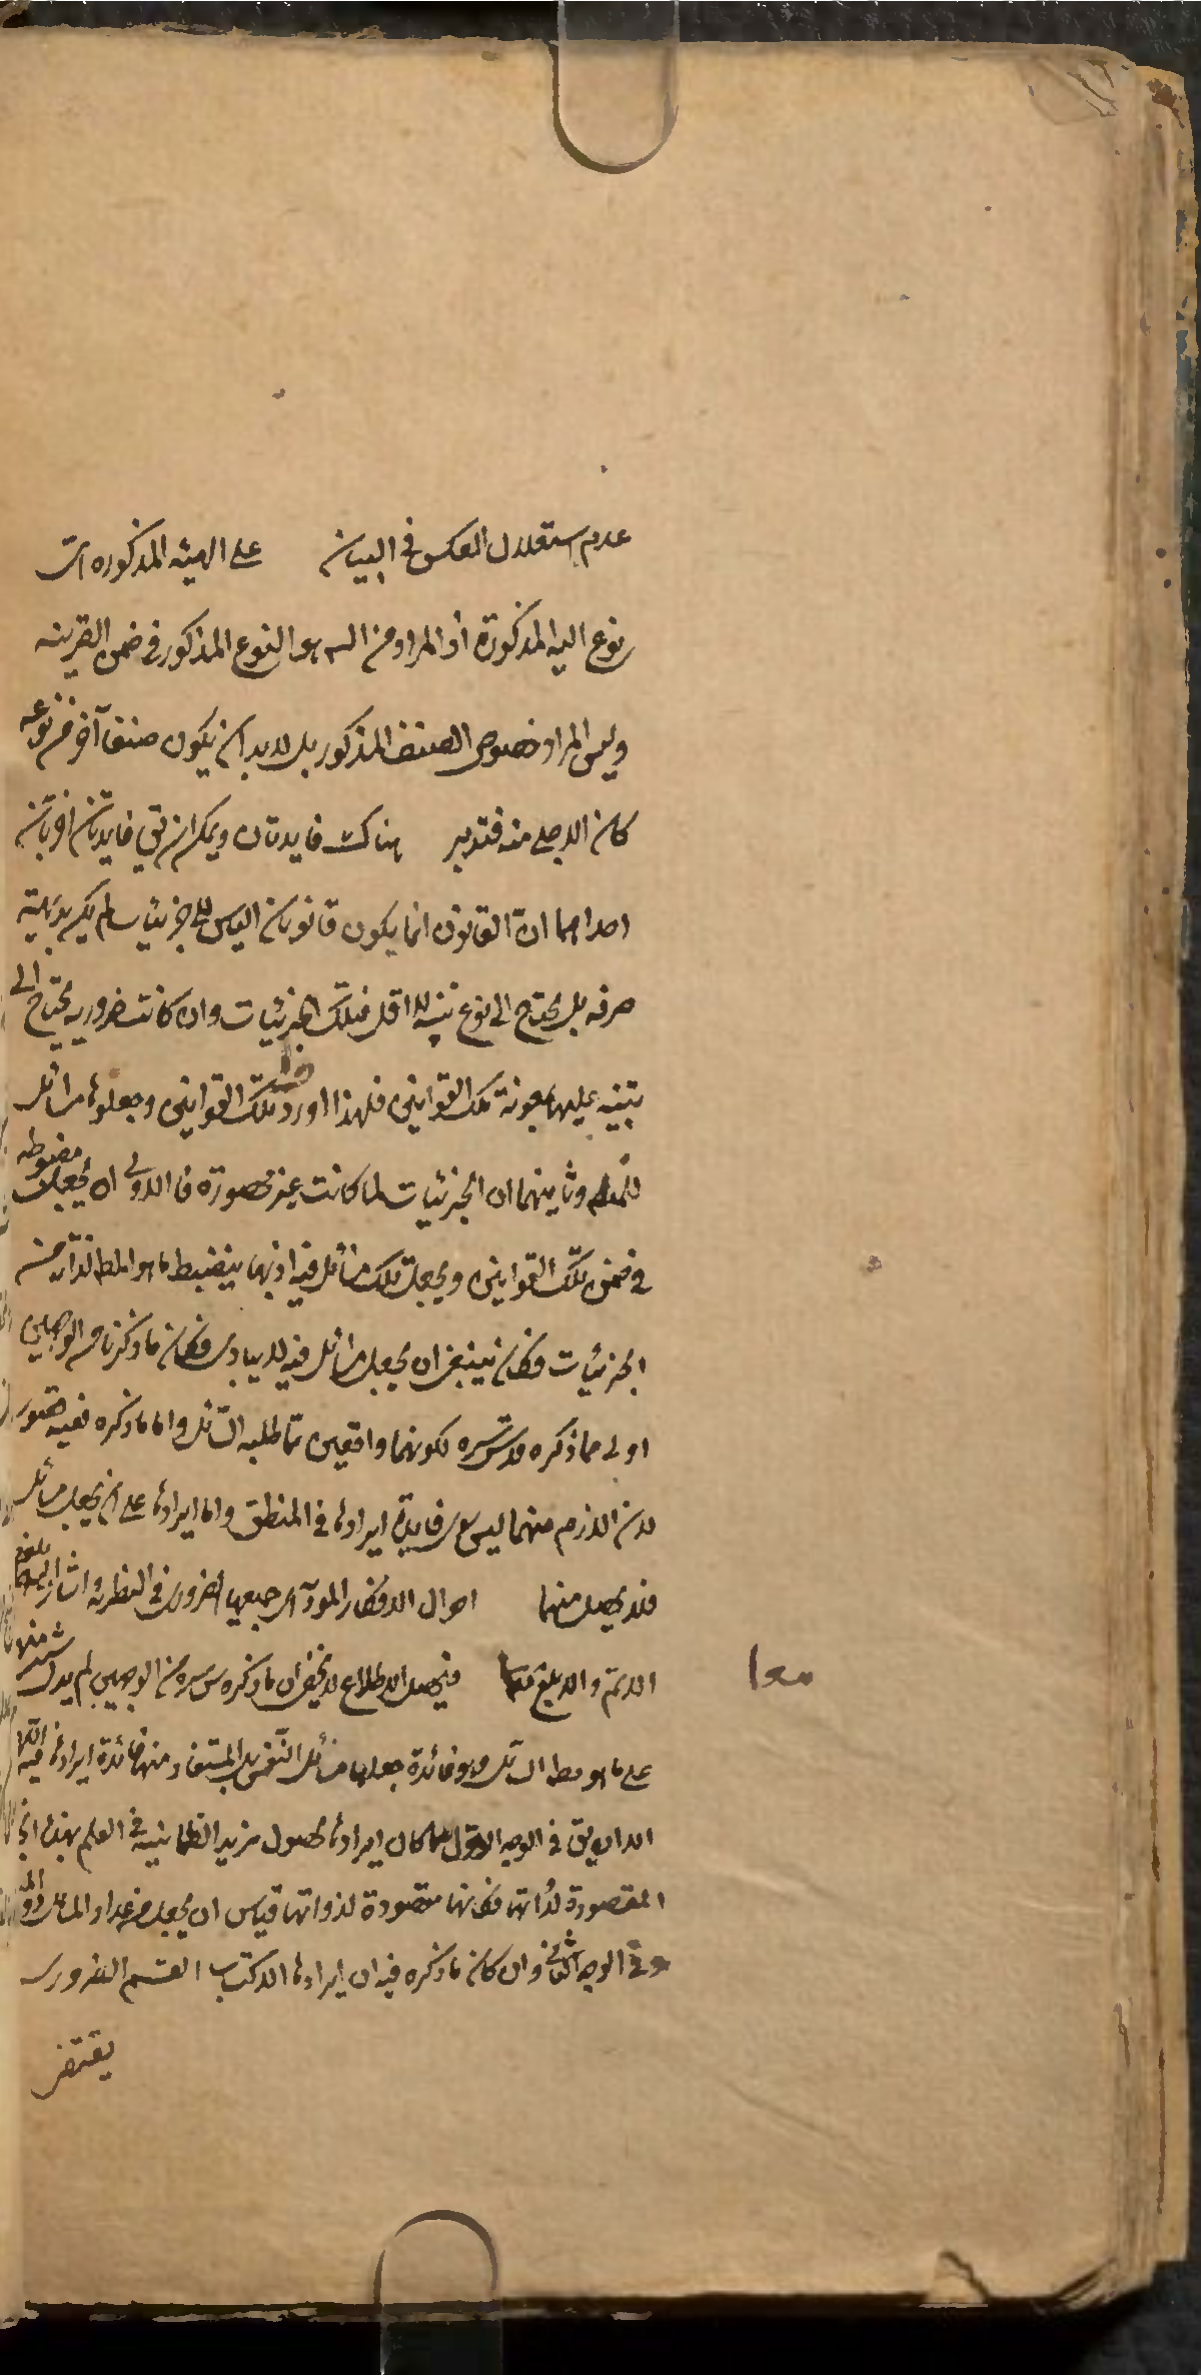 عدم استقلال العكس في البيان على الهيئة المذكورة اى
نوع اليه المذكورة اذ المراد من اليه هو النوع المذكور في ضمن القرينه
وليس المراد خصوص الصنف المذكور بل لابد ان يكون صنفا آخر من نوعه
كان الاجلى منه فتدبر هناك فايدتان ويمكن ان يق فايدتان اخريان
احداهما ان القانون انما يكون قانونا بالقياس الى جزئيات لم يكن بديهية
صرفه بل يحتاج الى نوع تنبيه لا اقل فتلك الجزئيات وان كانت ضرورية يحتاج الى
تنبيه عليها بمعونة تلك القوانين فلهذا اورد تلك القوانين وجعلوها مسائل
للعلم وثانيهما ان الجزئيات لما كانت غير محصورة فالاولى ان يجعل مضبوطه
في ضمن تلك القوانين ويجعل تلك مسائل فيه اذ بها ينضبط ما هو المط لذاته من
الجزئيات فكان ينبغى ان يجعل مسائل فيه لا مبادى فكان ما ذكرنا من الوجهين
اولى مما ذكره قدس سره لكونهما واقعين مما طلبه السائل واما ما ذكره ففيه قصور
لان اللازم منهما ليس سوى فايدة ايرادها في المنطق واما ايرادها على ان يجعل مسائل
فلا يحصل منهما احوال الافكار المؤداى جميعها الضرورى في النظر واشار اليهما
الاتم والابلغ فيحصل الاطلاع لا يخفى ان ما ذكره س سره من الوجهين لم يدل شىء منهما
معا
على ما هو مط السائل وهو فائدة جعلها مسائل الفن بل المستفاد منها فائدة ايرادها فيه اللهم
الا ان يق في الوجه الاول لما كان ايرادها لحصول مزيد الطمانينه في العلم بهذه
المقصودة لذاتها فكانها مقصودة لذواتها قياس ان يجعل من عداد المسائل
وفي الوجه الثانى وان كان ما ذكره فيه ان ايرادها لاكتساب القسم الضرورى
يقتضى